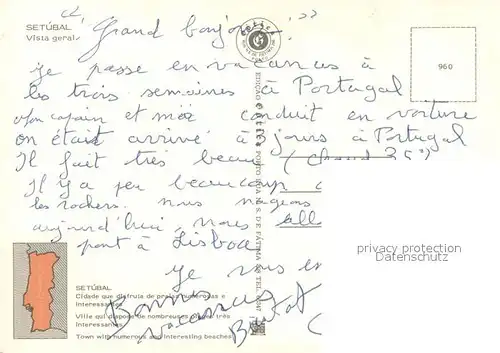 SETÚBAL
Vista geral
"Grand bonjour"
960
Je passe en vacances à
les trois semaines à Portugal
Mon copain et moi conduit en voiture
on était arrivé à jours à Portugal
Il fait très beau (chaud 35°)
Il y a peu beaucoup
les rochers. nous nageons
aujourd'hui, nous all
pont à Lisboa
privacy protection
SAMMLER.COM
Je vous en
Bonnes
vacances
SETÚBAL
Cidade que disfruta de praias numerosas e
interessantes
Ville qui dispose de nombreuses plages très
interessantes
Town with numerous and interesting beaches
EDIÇÃO